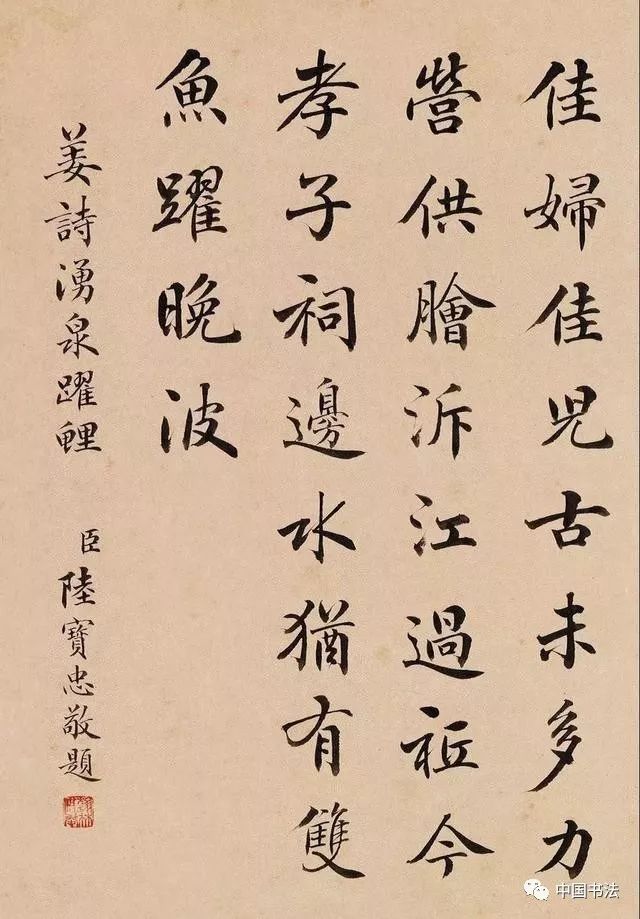 佳婦佳児古未多力
營供膾泝江過祗今
孝子祠邊水猶有雙
魚躍晚波
姜詩湧泉躍鯉
臣陸寶忠敬題
中国书法